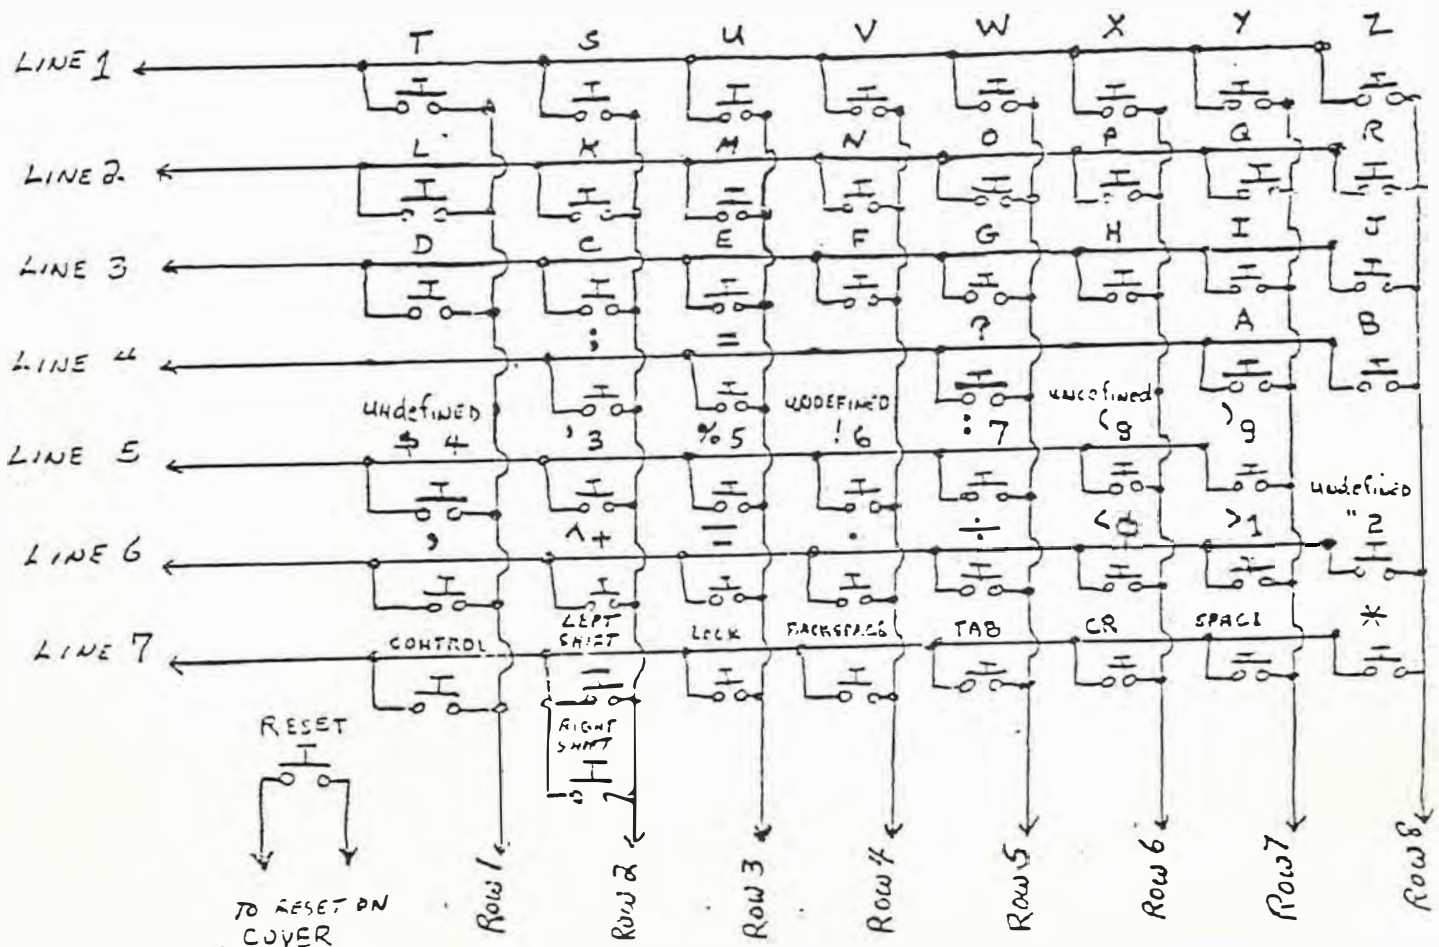 T S U V W X Y Z
LINE 1
L K M N O P Q R
LINE 2
D C E F G H I J
LINE 3
; = ? A B
LINE 4
UNDEFINED UNDEFINED UNDEFINED
$ 4 ' 3 % 5 ! 6 : 7 ( 8 ) 9
LINE 5
UNDEFINED
, ^ + — . ÷ < 0 > 1 " 2
LINE 6
CONTROL LEFT SHIFT LOCK BACKSPACE TAB CR SPACE *
LINE 7
RIGHT
SHIFT
RESET
TO RESET ON
COVER
ROW 1 ROW 2 ROW 3 ROW 4 ROW 5 ROW 6 ROW 7 ROW 8